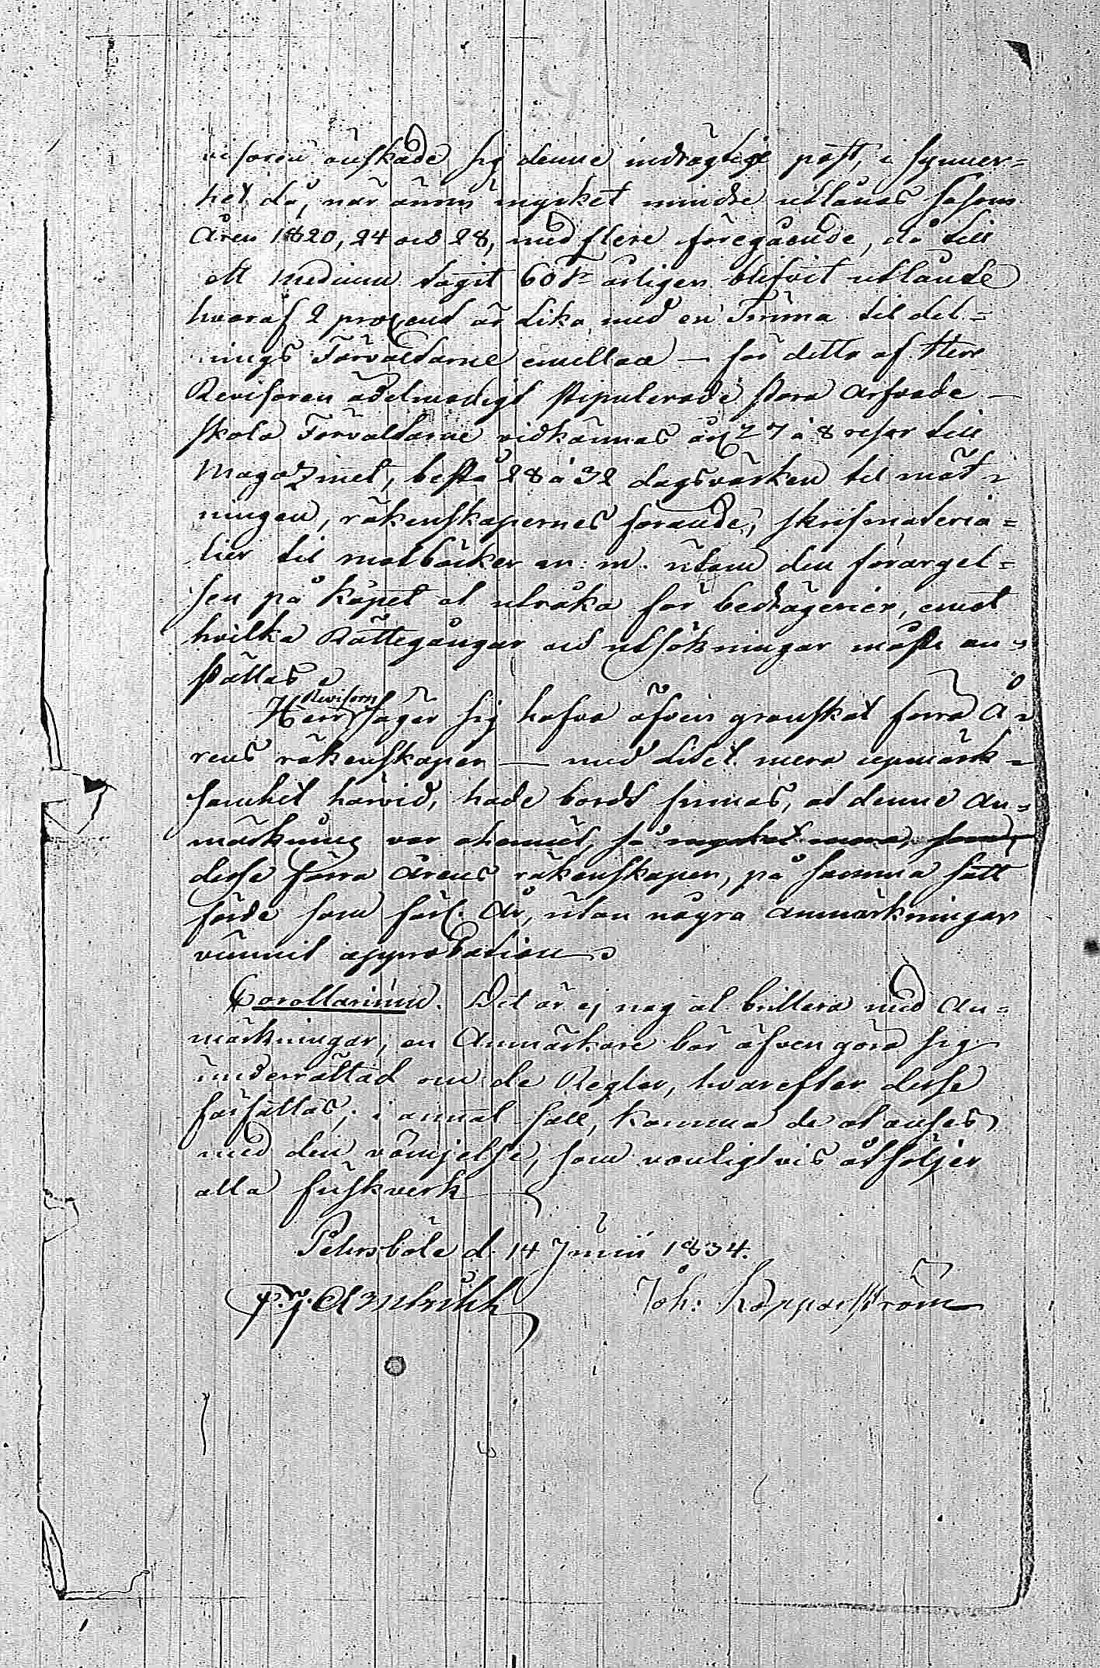 visoren önskade sig denne indrägtige post, i synner=
het då, när ännu mycket mindre utlånas såsom
Åren 1820, 24 och 28, med flere föregående, då till
ett medium taget 60 Tr årligen blifvit utlånte
hvaraf 2 procent är lika med en Tunna til del=
nings Förvaltarne emellan — för detta af Herr
Revisoren ädelmodigt stipulerade stora arfvode —
skola Förvaltarne vidkännas än 27 à 8 resor till
Magazinet, bestå 28 à 32 dagsvärken til mät=
ningen, räkenskapernes förande, skrifmateria=
lier til motböcker m. m. utom den förargel=
sen på köpet at utröka för bedrägerier, emot
hvilka Rättegångar och utsökningar måste an=
ställas.
Herr Revisorn säger sig hafva äfven granskat förra Å=
rens räkenskaper — med litet mera upmärk=
samhet härvid, hade bordt finnas, at denne An=
märkning var onämt, så mycket mera, som
desse förra Årens räkenskaper, på samma sätt
förde som förl. År, utan några anmärkningar
vunnit approbation.
Corollarium. Det är ej nog at brillera med An=
märkningar, en Anmärkare bör äfven göra sig
underrättad om de Regler, hvarefter desse
författas; i annat fall, komma de at anses
med den vämjelse, som vanligtvis åtföljer
alla fuskverk
Pehrsböle d. 14 Junii 1834.
Joh: Kopparström